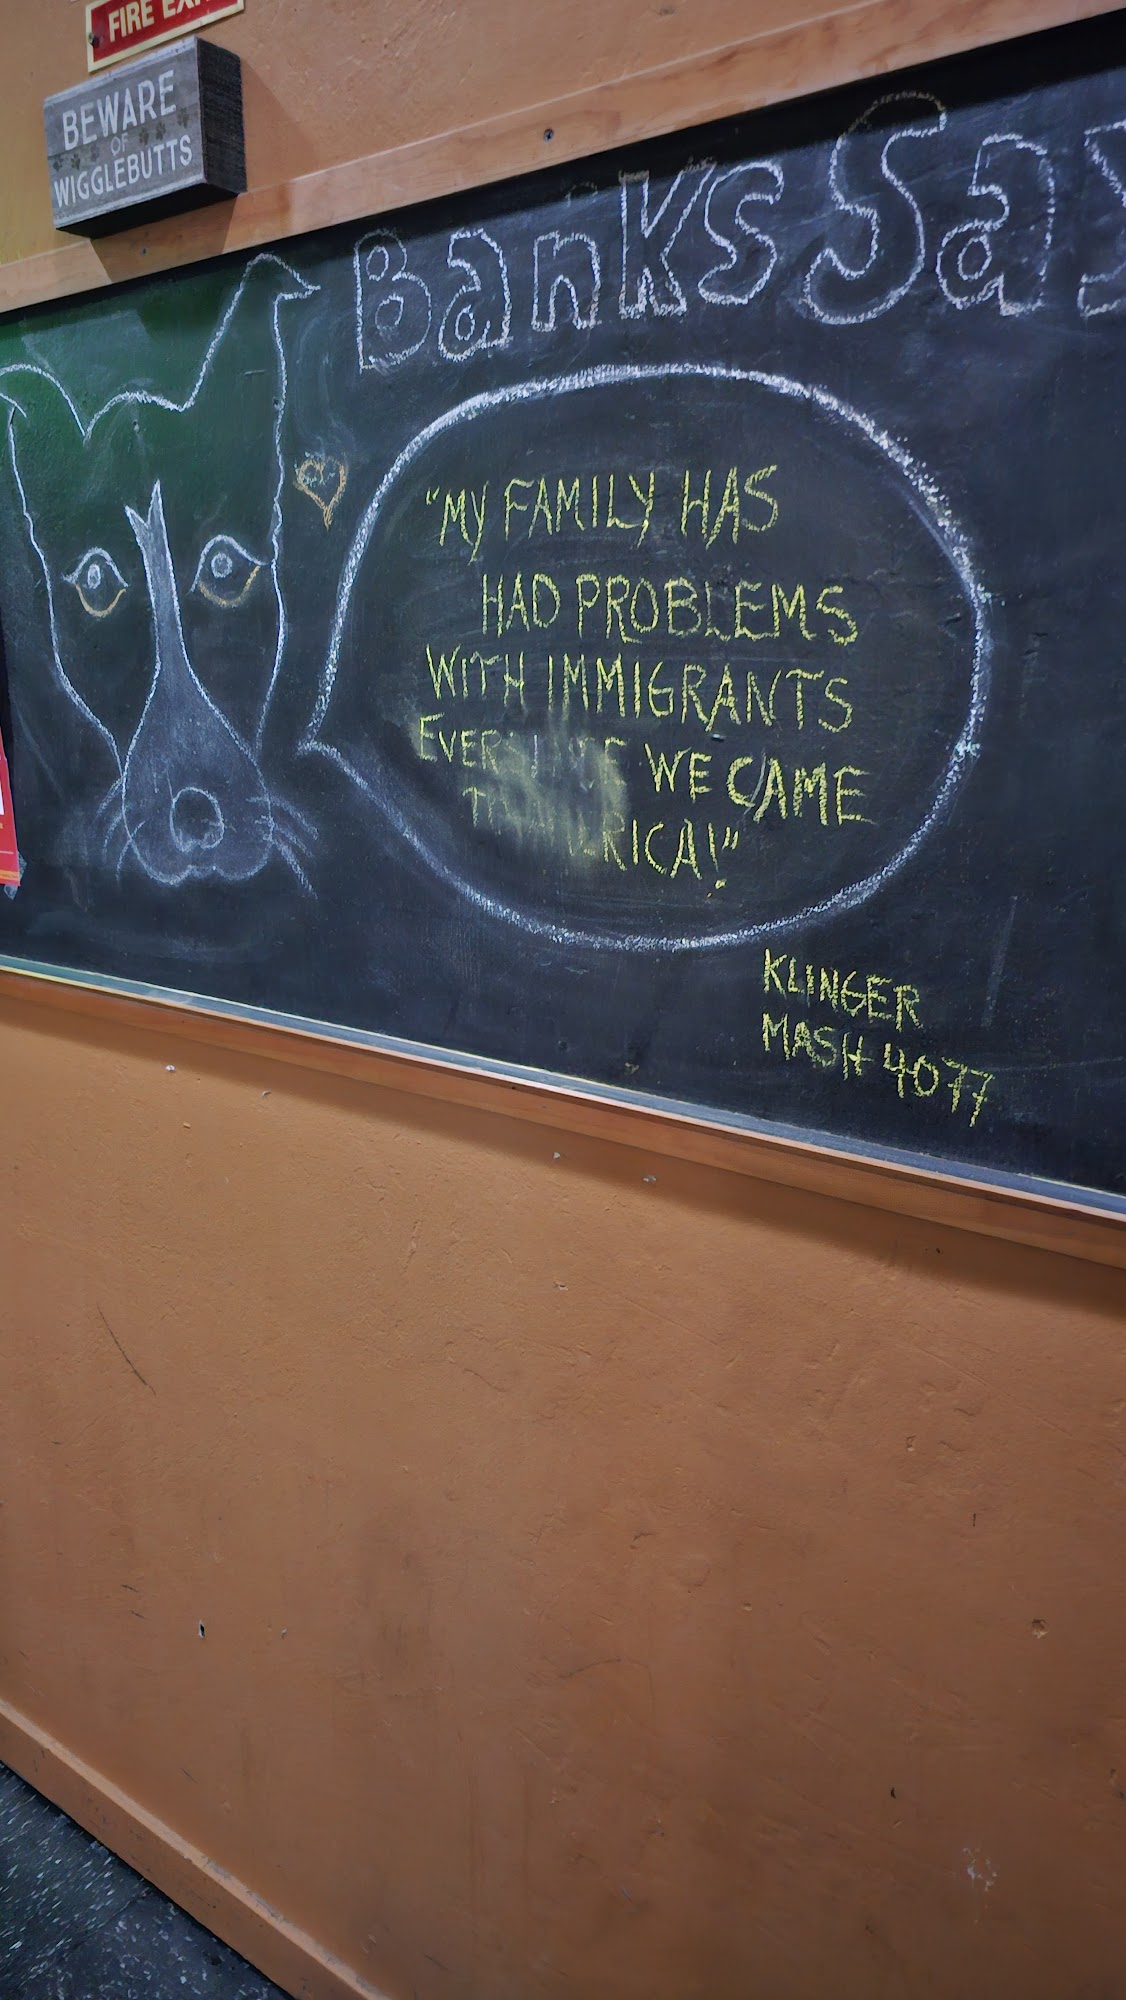 FIRE EXIT
BEWARE
OF
WIGGLEBUTTS
Banks Say
"MY FAMILY HAS
HAD PROBLEMS
WITH IMMIGRANTS
EVERY TIME WE CAME
TO AMERICA!"
KLINGER
MASH 4077